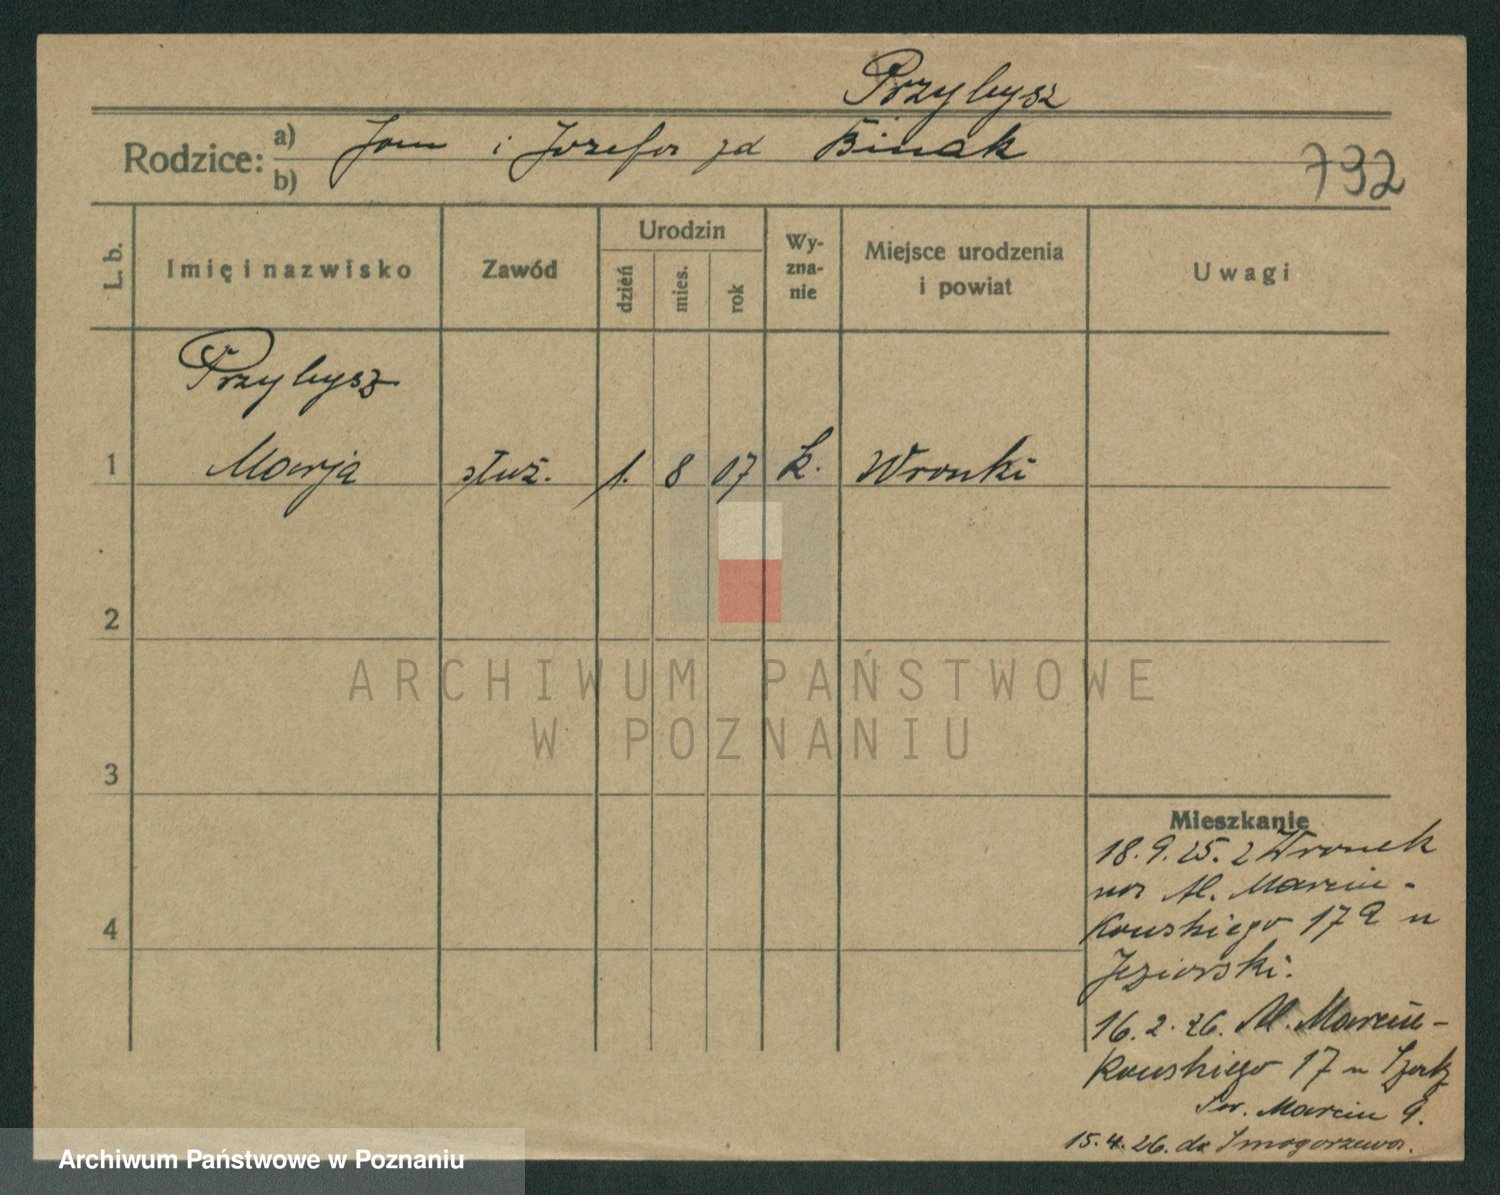 Przybysz
Rodzice: a) Jan i Józefa zd Binak
b)
792
L. b.
Imię i nazwisko
Zawód
Urodzin
dzień
mies.
rok
Wy-
zna-
nie
Miejsce urodzenia
i powiat
Uwagi
Przybysz
1 Marja służ. 1. 8 07 k. Wronki
2
3
4
Mieszkanie
18.9.25. z Wronek
na Al. Marcin-
kowskiego 17 u
Jeziorski.
16.2.26. Al. Marcin-
kowskiego 17 u
Św. Marcin 9.
15.4.26. do Smogorzewa.
ARCHIWUM PAŃSTWOWE
W POZNANIU
Archiwum Państwowe w Poznaniu